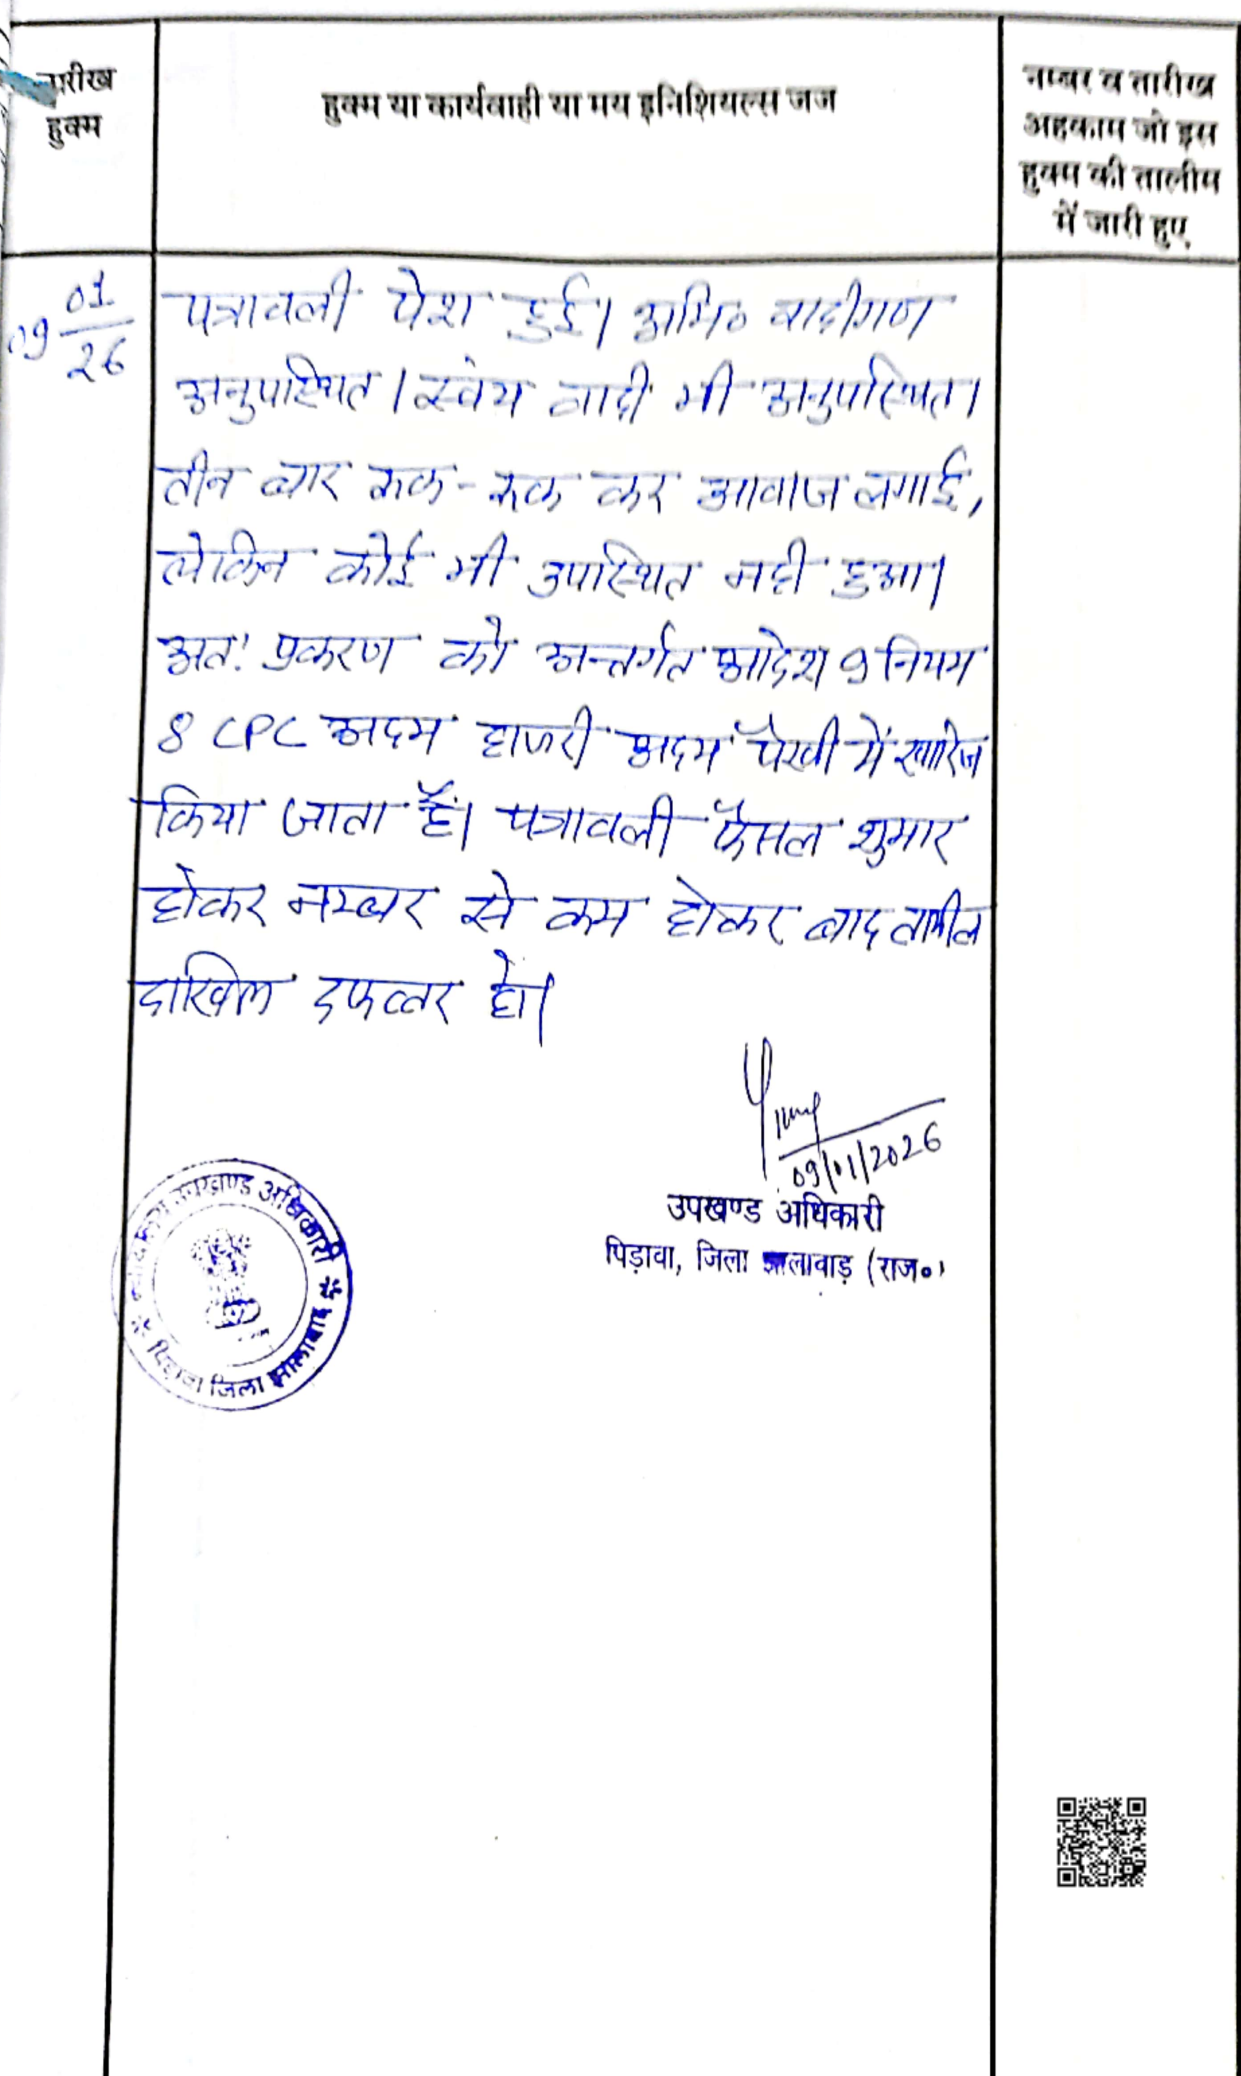 तारीख
हुक्म
हुक्म या कार्यवाही या मय इनिशियल्स जज
नम्बर व तारीख
अहकाम जो इस
हुक्म की तालीम
में जारी हुए
09 01/26
पत्रावली पेश हुई। अभि० वादीगण
अनुपस्थित। स्वंय वादी भी अनुपस्थित।
तीन बार रूक-रूक कर आवाज लगाई,
लेकिन कोई भी उपस्थित नही हुआ।
अतः प्रकरण को अन्तर्गत आदेश 9 नियम
8 CPC अदम हाजरी अदम पैरवी में खारिज
किया जाता हैं। पत्रावली फैसल शुमार
होकर नम्बर से कम होकर बाद तामील
दाखिल दफ्तर हो।
09/01/2026
उपखण्ड अधिकारी
पिड़ावा, जिला झालावाड़ (राज०)
उपखण्ड अधिकारी
पिड़ावा जिला झालावाड़